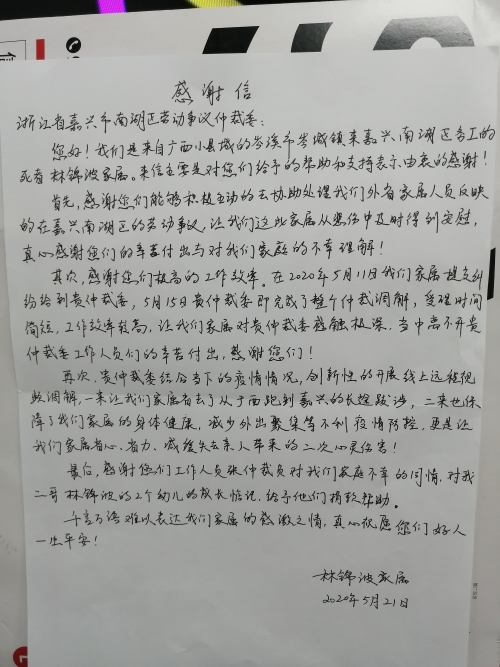 感谢信
浙江省嘉兴市南湖区劳动争议仲裁委:
您好!我们是来自广西小县城的岑溪市岑城镇来嘉兴南湖区务工的
死者林锦波家属。来信主要是对您们给予的帮助和支持表示由衷的感谢!
首先,感谢您们能够积极主动的去协助处理我们外省家属人员反映
的在嘉兴南湖区的劳动争议,让我们这些家属从悲伤中及时得到安慰,
真心感谢您们的辛苦付出与对我们家庭的不幸理解!
其次,感谢您们极高的工作效率。在2020年5月11日我们家属提交纠
纷给到贵仲裁委,5月15日贵仲裁委即完成了整个仲裁调解,受理时间
简短,工作效率较高,让我们家属对贵仲裁委感触极深,当中离不开贵
仲裁委工作人员们的辛苦付出,感谢您们!
再次,贵仲裁委结合当下的疫情情况,创新性的开展线上远程视
频调解,一来让我们家属省去了从广西跑到嘉兴的长途跋涉,二来也保
障了我们家属的身体健康,减少外出聚集等不利疫情防控,更是让
我们家属省心、省力、减缓失去亲人带来的二次心灵伤害!
最后,感谢您们工作人员张仲裁员对我们家庭不幸的同情,对我
二哥林锦波的2个幼儿的成长惦记,给予他们捐款帮助。
千言万语难以表达我们家属的感激之情,真心祝愿您们好人
一生平安!
林锦波家属
2020年5月21日